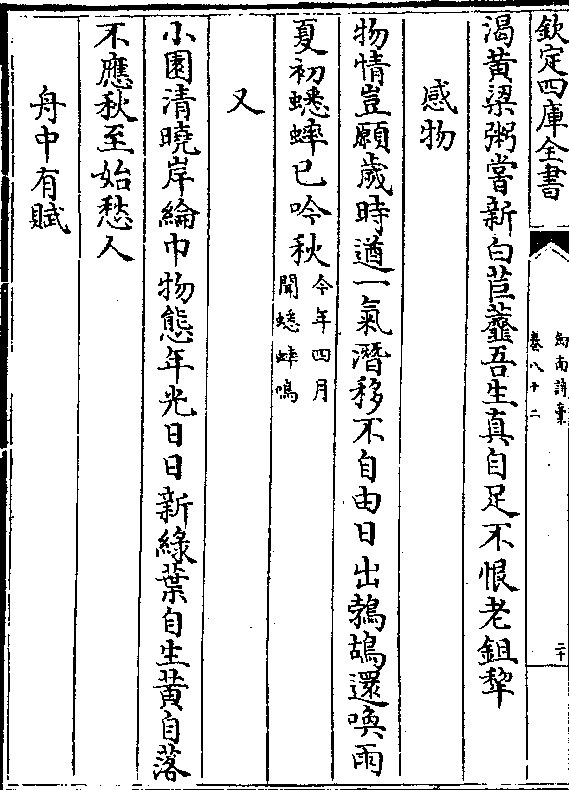 欽定四庫全書
劍南詩稾
卷八十二
二十
渴黄粱粥嘗新白苣虀吾生真自足不恨老鉏犂
感物
物情豈願歲時遒一氣潛移不自由日出鵓鴣還喚雨
夏初蟋蟀已吟秋今年四月
聞蟋蟀鳴
又
小園清曉岸綸巾物態年光日日新綠葉自生黄自落
不應秋至始愁人
舟中有賦